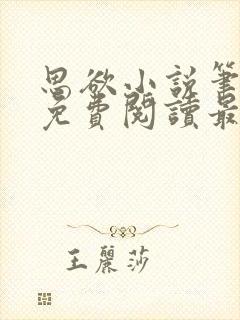 思欲小説筆
免費閱讀最
王麗莎